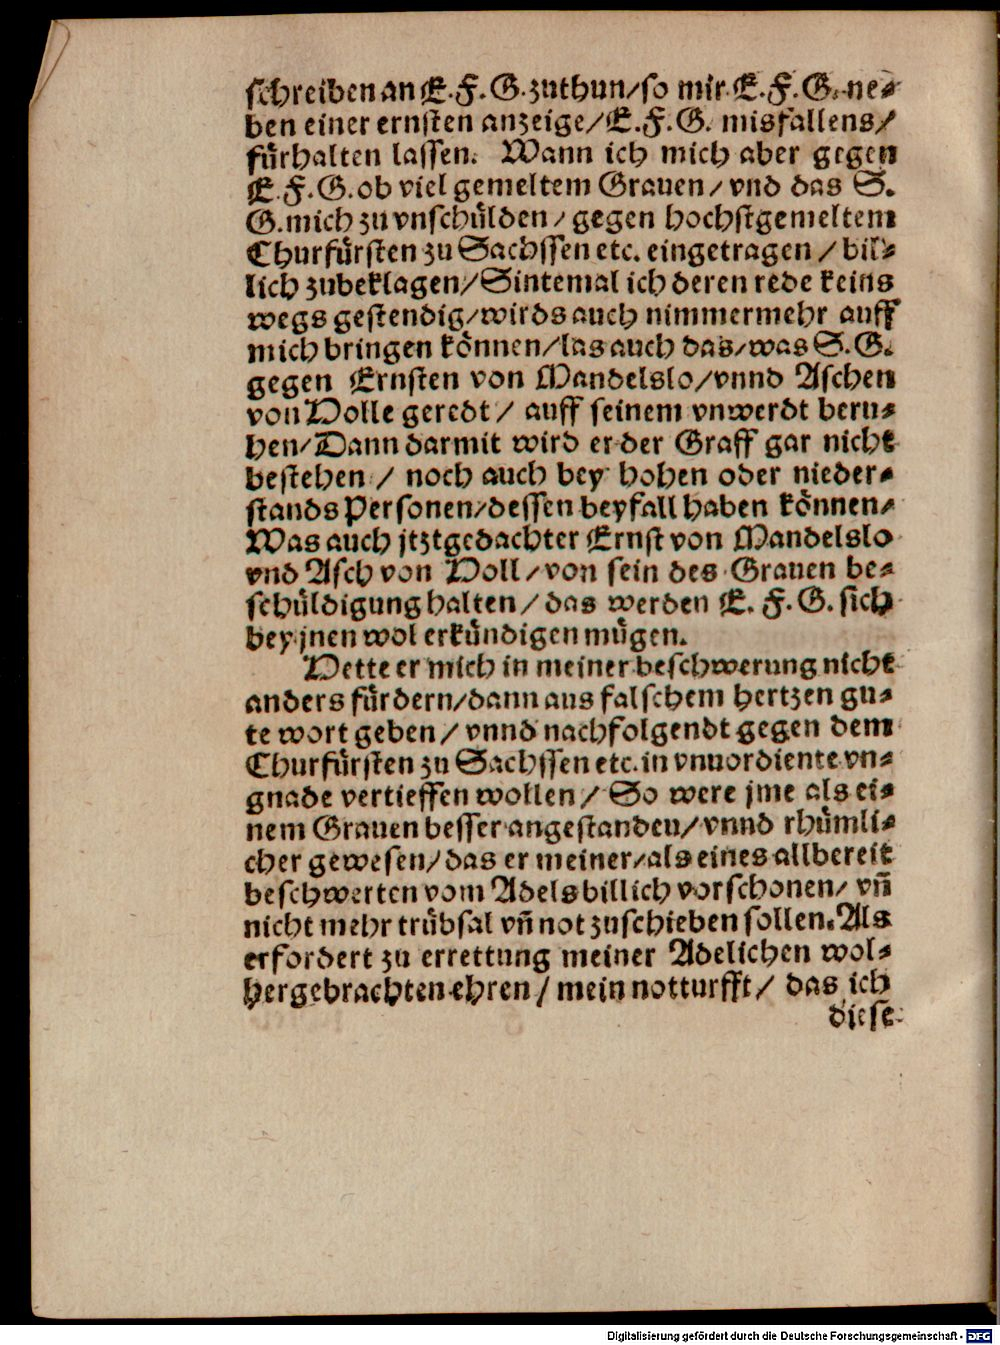 schreiben an E. F. G. zuthun/so mir E. F. G. ne⸗
ben einer ernsten anzeige/E. F. G. misfallens/
fürhalten lassen. Wann ich mich aber gegen
E. F. G. ob viel gemeltem Grauen/vnd das S.
G. mich zu vnschülden/gegen hochstgemeltem
Churfürsten zu Sachssen etc. eingetragen/bil⸗
lich zubeklagen/Sintemal ich deren rede keins
wegs gestendig/wirds auch nimmermehr auff
mich bringen können/las auch das/was S. G.
gegen Ernsten von Mandelslo/vnnd Aschen
von Holle geredt/ auff seinem vnwerdt beru⸗
hen/Dann darmit wird er der Graff gar nicht
bestehen / noch auch bey hohen oder nieder⸗
stands Personen/dessen beyfall haben können/
Was auch jtztgedachter Ernst von Mandelslo
vnd Asch von Holl/von sein des Grauen be⸗
schüldigung halten/das werden E. F. G. sich
bey jnen wol erkündigen mügen.
Hette er mich in meiner beschwerung nicht
anders fürdern/dann aus falschem hertzen gu⸗
te wort geben/vnnd nachfolgendt gegen dem
Churfürsten zu Sachssen etc. in vnuordiente vn⸗
gnade vertieffen wollen/ So were jme als ei⸗
nem Grauen besser angestanden/vnnd rhümli⸗
cher gewesen/das er meiner/als eines allbereit
beschwerten vom Adels billich vorschonen/ vñ
nicht mehr trübsal vñ not zuschieben sollen. Als
erfordert zu errettung meiner Adelichen wol⸗
hergebrachten ehren/mein notturfft/ das ich
diese
Digitalisierung gefördert durch die Deutsche Forschungsgemeinschaft - DFG